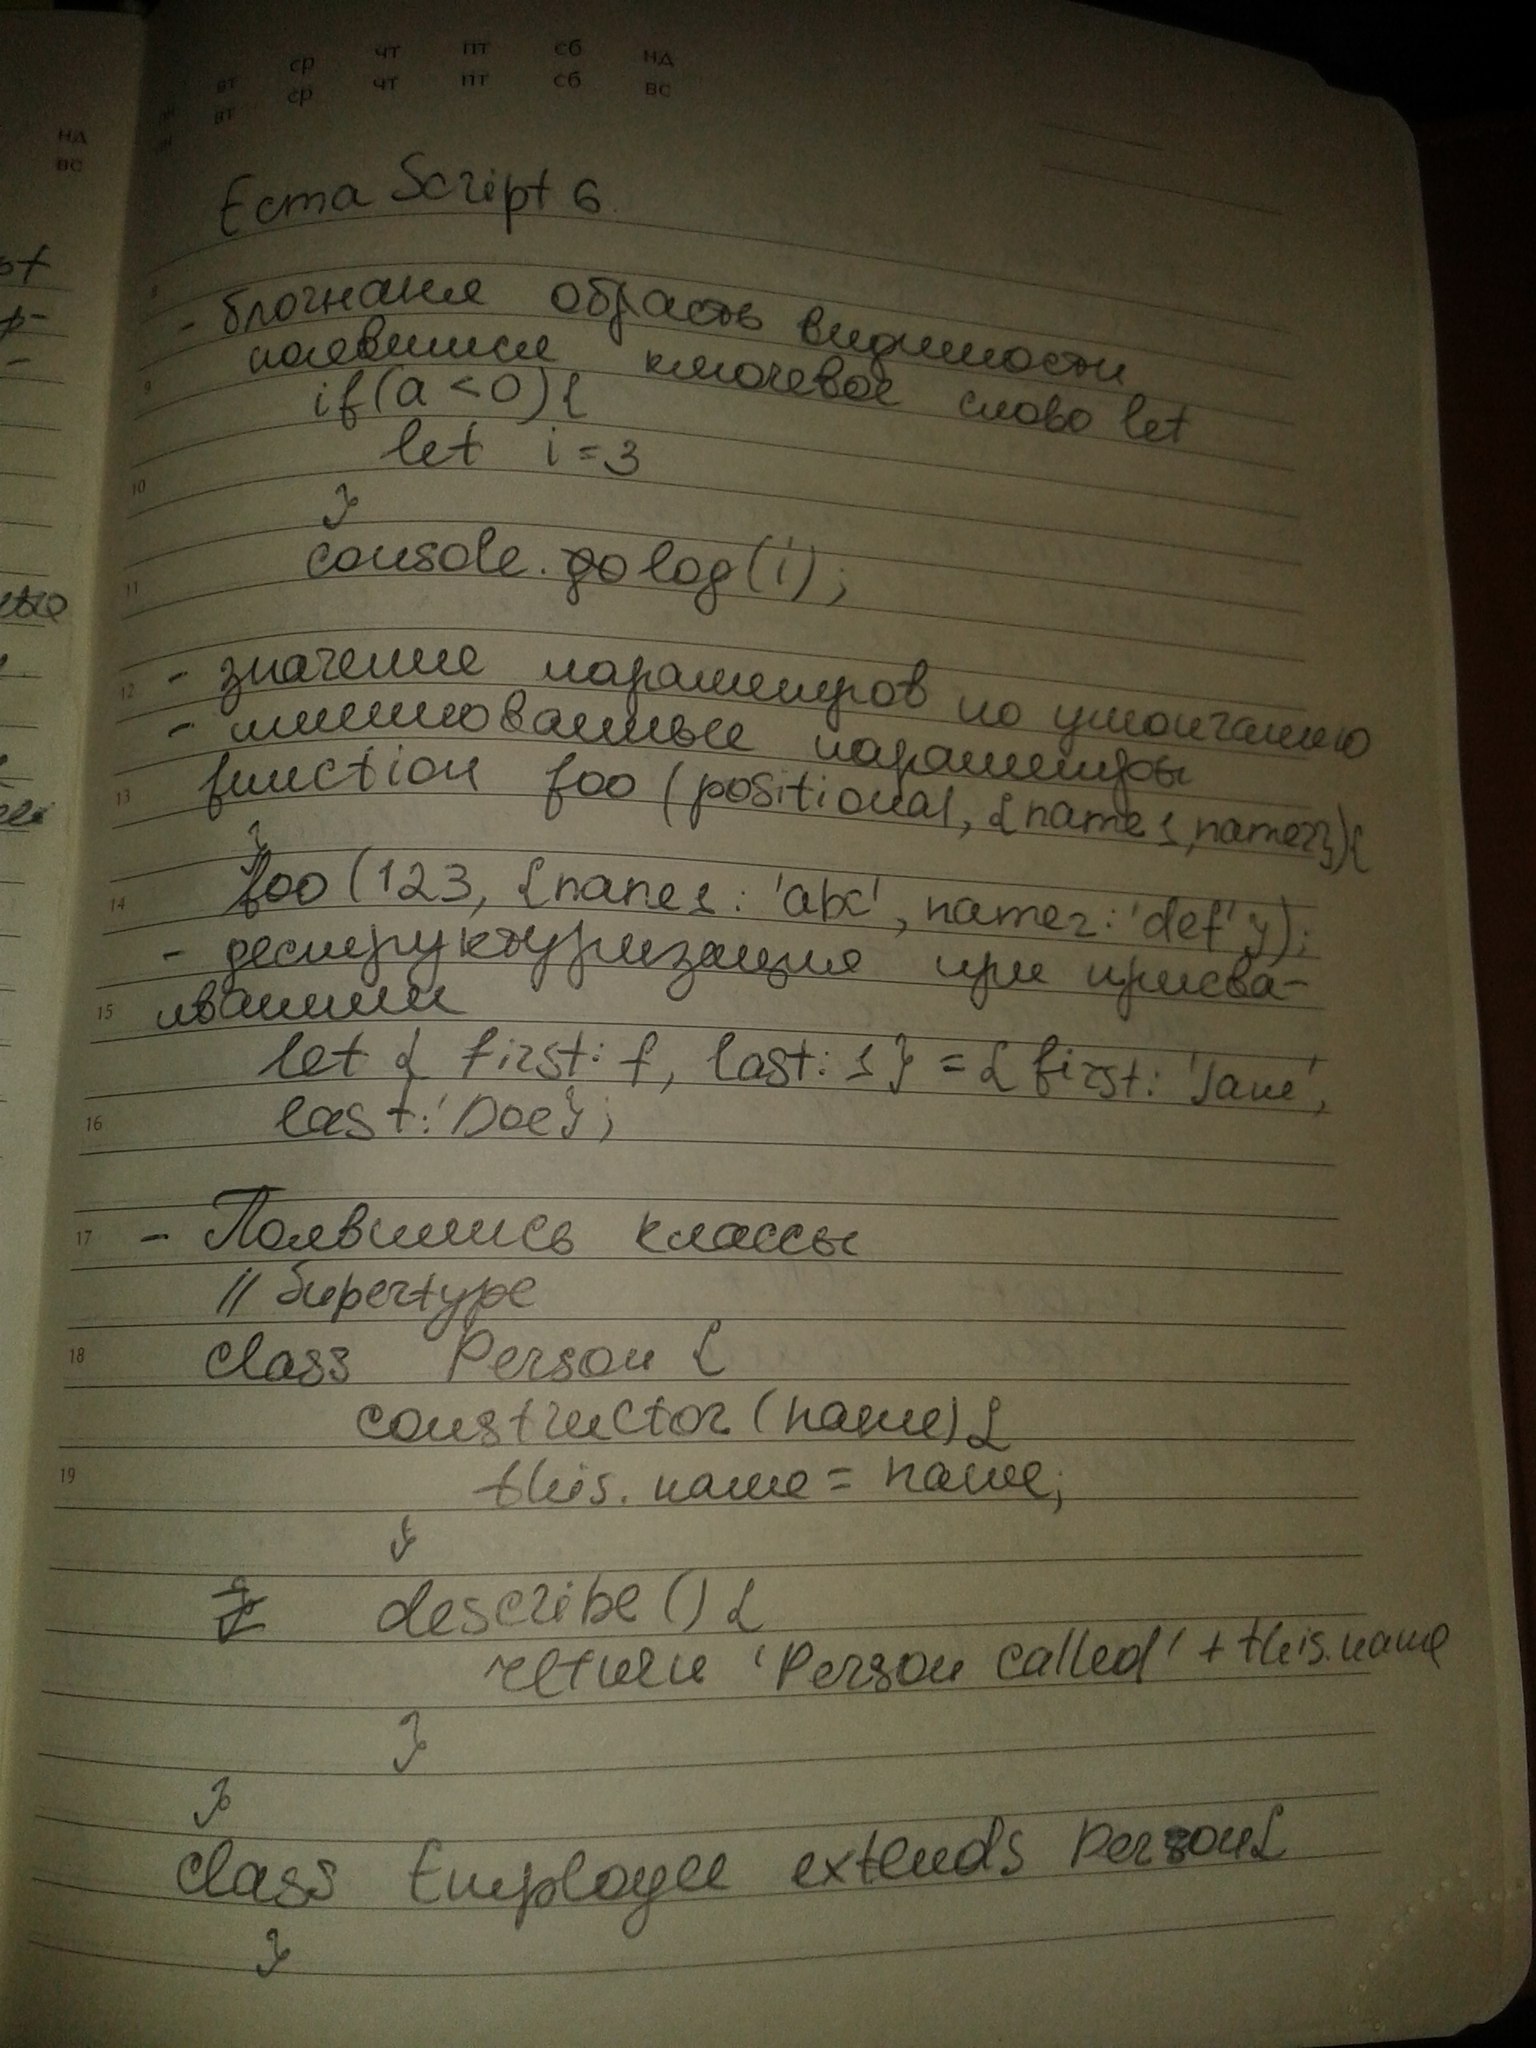 ср чт пт сб нд
вт ср чт пт сб вс
вт
нд
вс
Ecma Script 6
8
- блочная область видимости
9
появился ключевое слово let
if (a < 0) {
let i = 3
10
}
console.log(i);
11
- значение параметров по умолчанию
12
- именованные параметры
function foo (positional, {name1, name2}) {
13
}
foo (123, {name1: 'abc', name2: 'def'});
14
- деструктуризация при присва-
ивании
15
let { first: f, last: l } = { first: 'Jane',
last: 'Doe};
16
- Появились классы
17
// Supertype
class Person {
18
constructor (name) {
this.name = name;
19
}
describe () {
return 'Person called' + this.name
}
}
class Employee extends Person {
}